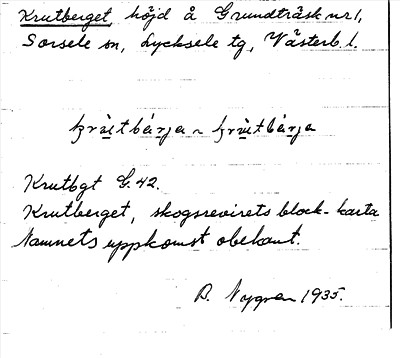 Krutberget, höjd å Grundträsk nr 1,
Sorsele sn, Lycksele tg, Västerb. l.
krùtbárja ~ krùtbárja
Krutbgt G.42.
Krutberget, skogsrevirets block-karta
Namnets uppkomst obekant.
B. Nygren 1935.